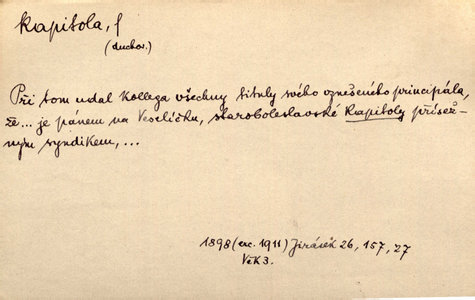 kapitola, f
(duchov.)
Při tom udal kollega všechny tituly svého vznešeného principála,
že... je pánem na Veselíčku, staroboleslavské kapitoly přísež-
ným syndikem, ...
1898 (exc. 1911) Jirásek 26, 157, 27
Věk 3.